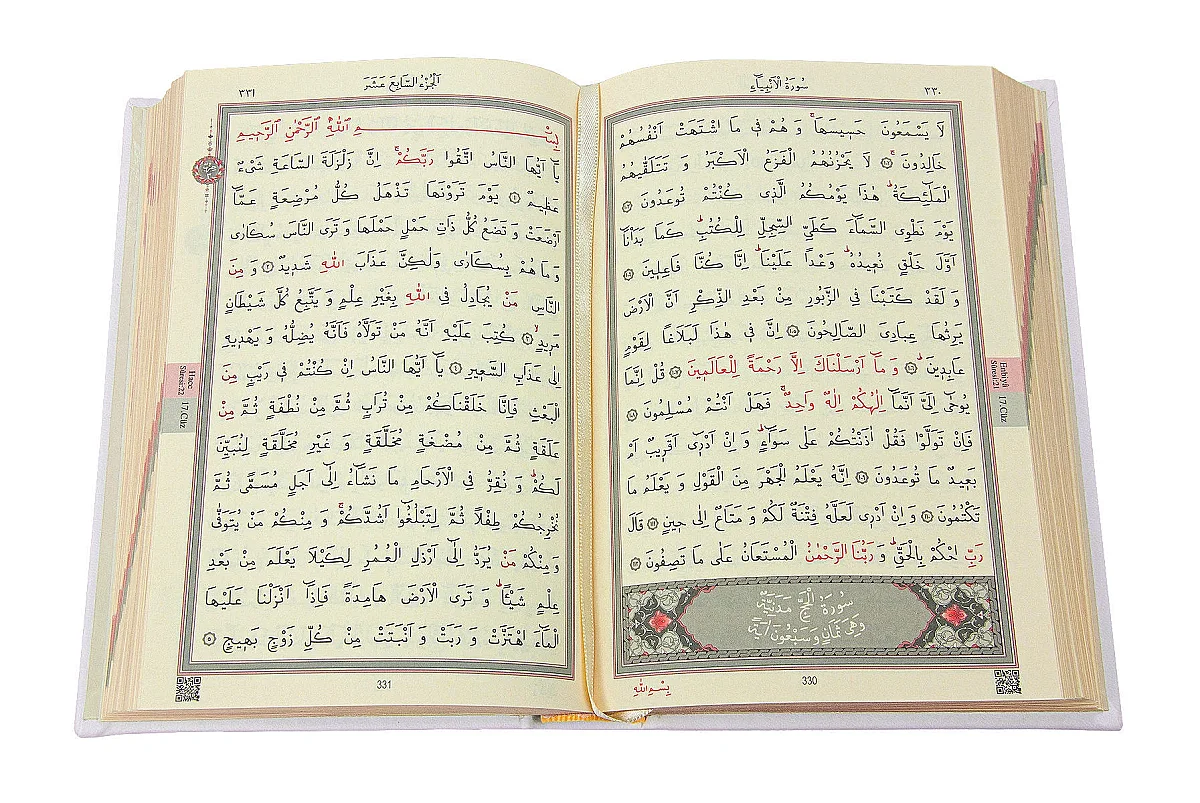 ٣٣٠
سُورَةُ الْاَنْبِيَاءِ
لَا يَسْمَعُونَ حَسِيسَهَاۚ وَ هُمْ فٖى مَا اشْتَهَتْ اَنْفُسُهُمْ
خَالِدُونَۚ ﴿١٠٢﴾ لَا يَحْزُنُهُمُ الْفَزَعُ الْاَكْبَرُ وَ تَتَلَقّٰيهُمُ
الْمَلٰٓئِكَةُؕ هٰذَا يَوْمُكُمُ الَّذٖى كُنْتُمْ تُوعَدُونَ ﴿١٠٣﴾
يَوْمَ نَطْوِى السَّمَٓاءَ كَطَىِّ السِّجِلِّ لِلْكُتُبِؕ كَمَا بَدَاْنَٓا
اَوَّلَ خَلْقٍ نُعٖيدُهُؕ وَعْدًا عَلَيْنَاؕ اِنَّا كُنَّا فَاعِلٖينَ ﴿١٠٤﴾
وَ لَقَدْ كَتَبْنَا فِى الزَّبُورِ مِنْ بَعْدِ الذِّكْرِ اَنَّ الْاَرْضَ
يَرِثُهَا عِبَادِىَ الصَّالِحُونَ ﴿١٠٥﴾ اِنَّ فٖى هٰذَا لَبَلَاغًا لِقَوْمٍ
عَابِدٖينَؕ ﴿١٠٦﴾ وَ مَٓا اَرْسَلْنَاكَ اِلَّا رَحْمَةً لِلْعَالَمٖينَ ﴿١٠٧﴾ قُلْ اِنَّمَا
يُوحٰٓى اِلَىَّ اَنَّمَٓا اِلٰهُكُمْ اِلٰهٌ وَاحِدٌۚ فَهَلْ اَنْتُمْ مُسْلِمُونَ ﴿١٠٨﴾
فَاِنْ تَوَلَّوْا فَقُلْ اٰذَنْتُكُمْ عَلٰى سَوَٓاءٍؕ وَ اِنْ اَدْرٖٓى اَقَرٖيبٌ اَمْ
بَعٖيدٌ مَا تُوعَدُونَ ﴿١٠٩﴾ اِنَّهُ يَعْلَمُ الْجَهْرَ مِنَ الْقَوْلِ وَ يَعْلَمُ مَا
تَكْتُمُونَ ﴿١١٠﴾ وَ اِنْ اَدْرٖى لَعَلَّهُ فِتْنَةٌ لَكُمْ وَ مَتَاعٌ اِلٰى حٖينٍ ﴿١١١﴾ قَالَ
رَبِّ احْكُمْ بِالْحَقِّؕ وَ رَبُّنَا الرَّحْمٰنُ الْمُسْتَعَانُ عَلٰى مَا تَصِفُونَ ﴿١١٢﴾
سُورَةُ الْحَجِّ مَدَنِيَّةٌ
وَهِىَ ثَمَانٍ وَسَبْعُونَ اٰيَةً
Enbiyâ
Sûresi:21
17.Cüz
بِسْمِ اللّٰهِ
330
٣٣١
اَلْجُزْءُ السَّابِعَ عَشَرَ
بِسْمِ اللّٰهِ الرَّحْمٰنِ الرَّحٖيمِ
يَٓا اَيُّهَا النَّاسُ اتَّقُوا رَبَّكُمْۚ اِنَّ زَلْزَلَةَ السَّاعَةِ شَىْءٌ
عَظٖيمٌ ﴿١﴾ يَوْمَ تَرَوْنَهَا تَذْهَلُ كُلُّ مُرْضِعَةٍ عَمَّٓا
اَرْضَعَتْ وَ تَضَعُ كُلُّ ذَاتِ حَمْلٍ حَمْلَهَا وَ تَرَى النَّاسَ سُكَارٰى
وَ مَا هُمْ بِسُكَارٰى وَلٰكِنَّ عَذَابَ اللّٰهِ شَدٖيدٌ ﴿٢﴾ وَ مِنَ
النَّاسِ مَنْ يُجَادِلُ فِى اللّٰهِ بِغَيْرِ عِلْمٍ وَ يَتَّبِعُ كُلَّ شَيْطَانٍ
مَرٖيدٍۙ ﴿٣﴾ كُتِبَ عَلَيْهِ اَنَّهُ مَنْ تَوَلَّاهُ فَاَنَّهُ يُضِلُّهُ وَ يَهْدٖيهِ
اِلٰى عَذَابِ السَّعٖيرِ ﴿٤﴾ يَٓا اَيُّهَا النَّاسُ اِنْ كُنْتُمْ فٖى رَيْبٍ مِنَ
الْبَعْثِ فَاِنَّا خَلَقْنَاكُمْ مِنْ تُرَابٍ ثُمَّ مِنْ نُطْفَةٍ ثُمَّ مِنْ
عَلَقَةٍ ثُمَّ مِنْ مُضْغَةٍ مُخَلَّقَةٍ وَ غَيْرِ مُخَلَّقَةٍ لِنُبَيِّنَ
لَكُمْؕ وَ نُقِرُّ فِى الْاَرْحَامِ مَا نَشَٓاءُ اِلٰٓى اَجَلٍ مُسَمًّى ثُمَّ
نُخْرِجُكُمْ طِفْلًا ثُمَّ لِتَبْلُغُٓوا اَشُدَّكُمْۚ وَ مِنْكُمْ مَنْ يُتَوَفّٰى
وَ مِنْكُمْ مَنْ يُرَدُّ اِلٰٓى اَرْذَلِ الْعُمُرِ لِكَيْلَا يَعْلَمَ مِنْ بَعْدِ
عِلْمٍ شَيْـًٔاؕ وَ تَرَى الْاَرْضَ هَامِدَةً فَاِذَٓا اَنْزَلْنَا عَلَيْهَا
الْمَٓاءَ اهْتَزَّتْ وَ رَبَتْ وَ اَنْبَتَتْ مِنْ كُلِّ زَوْجٍ بَهٖيجٍ ﴿٥﴾
Hacc
Sûresi:22
17.Cüz
331